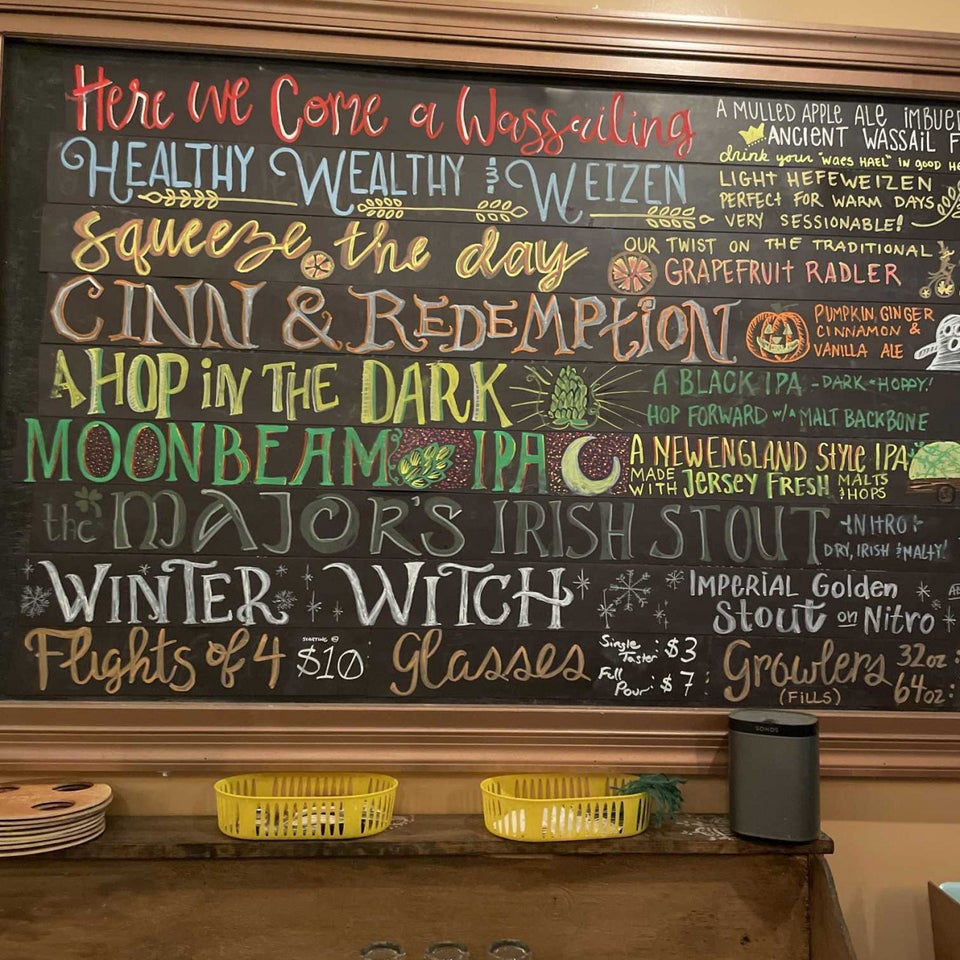 Here we Come a Wassailing
A MULLED APPLE ALE iMBUED
ANCIENT WASSAIL
drink your "WAES HAEL" IN good
HEALTHY WEALTHY & WEIZEN
LIGHT HEFEWEIZEN
PERFECT FOR WARM DAYS
VERY SESSIONABLE!
squeeze the day
OUR TWIST ON THE TRADITIONAL
GRAPEFRUIT RADLER
CINN & REDEMPTiON
PUMPKIN, GINGER
CINNAMON &
VANILLA ALE
A HOP iN THE DARK
A BLACK IPA - DARK + HOPPY!
HOP FORWARD w/ A MALT BACKBONE
MOONBEAM IPA
A NEW ENGLAND STYLE IPA
MADE WITH JERSEY FRESH MALTS & HOPS
the MAJOR'S IRISH STOUT
NITRO
DRY, IRISH & MALTY!
WINTER WITCH
IMPERIAL Golden
Stout on Nitro
Flights of 4 STARTING @ $10
Glasses
Single Taster : $3
Full Pour : $7
Growlers
(FiLLS)
32oz :
64oz :
SONOS